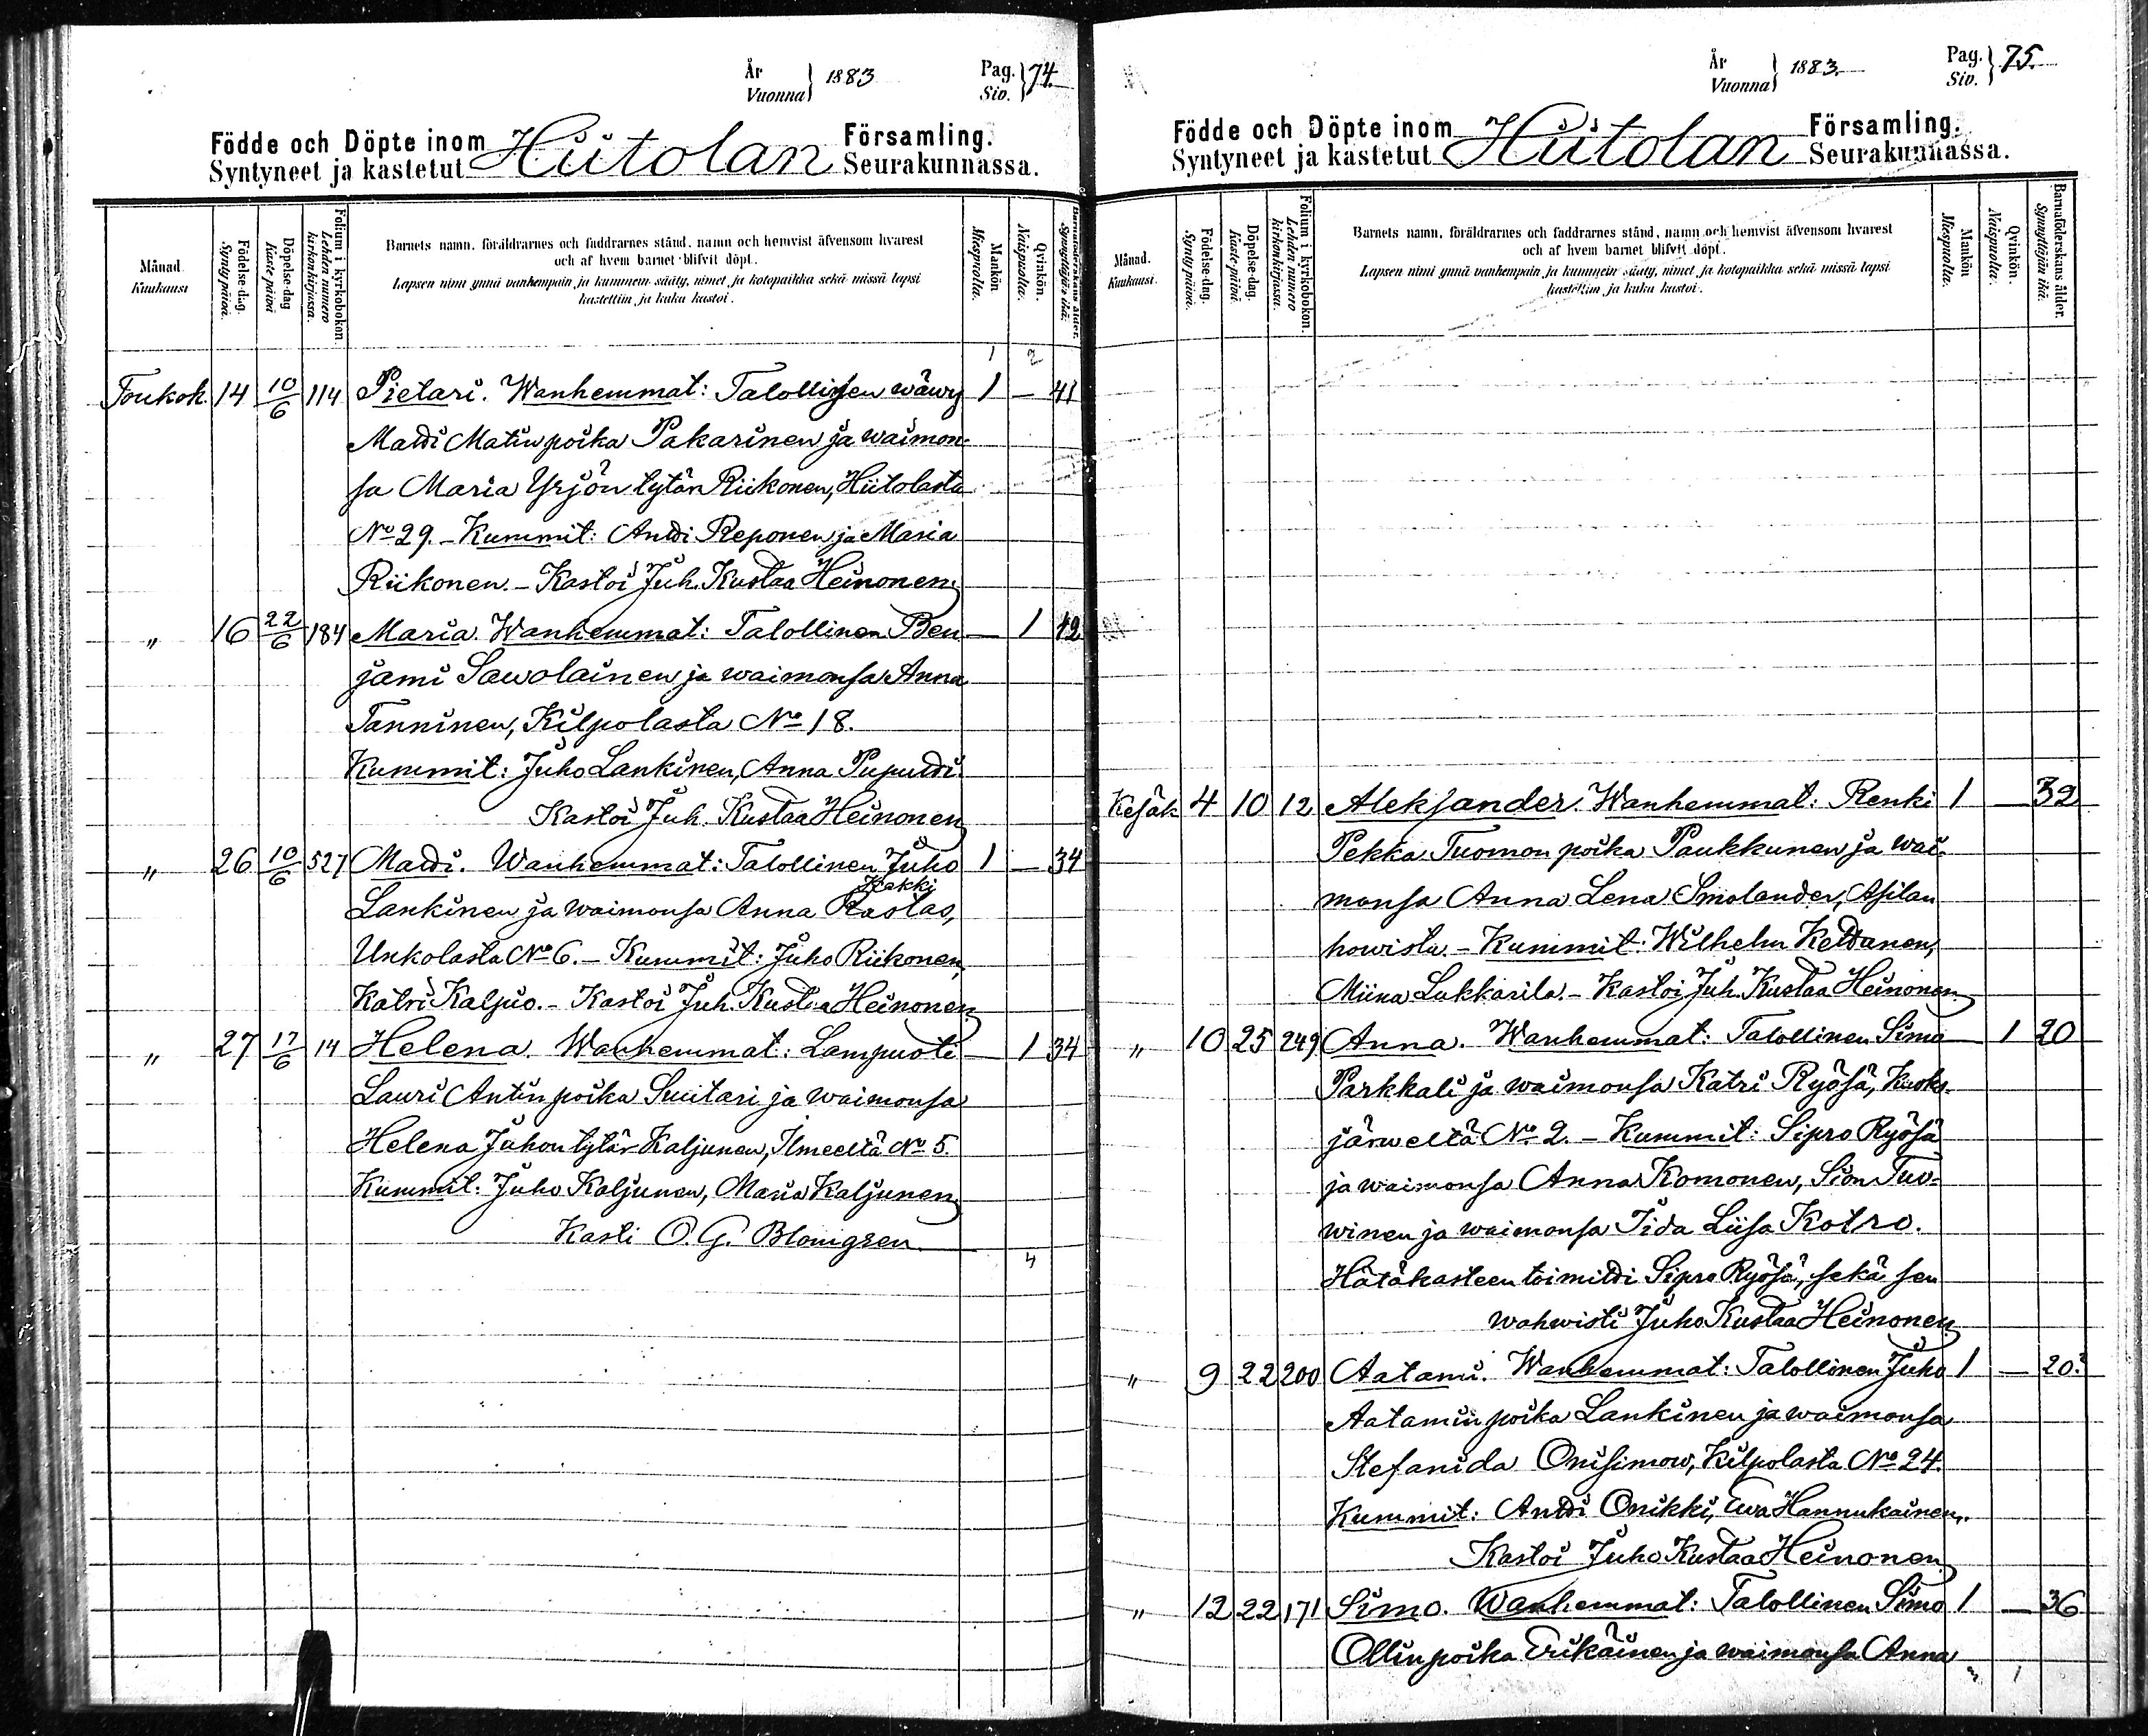 År
Vuonna } 1883
Pag.
Siv. } 74.
Födde och Döpte inom Hiitolan Församling.
Syntyneet ja kastetut Seurakunnassa.
Månad. Kuukausi
Födelse-dag. Syntypäivä.
Döpelse-dag Kaste-päivä
Folium i kyrkobokon Lehden numero kirkonkirjassa.
Barnets namn, föräldrarnes och faddrarnes stånd, namn och hemvist äfvensom hvarest
och af hvem barnet blifvit döpt.
Lapsen nimi ynnä vanhempain ja kummein sääty, nimet ja kotopaikka sekä missä lapsi
kastettiin ja kuka kastoi.
Mankön Miespuolta.
Qvinkön. Naispuolta.
Barnaföderskans ålder. Synnyttäjän ikä.
1 2
Toukok. 14 10/6 114 Pietari. Wanhemmat: Talollisen wäwy 1 — 41
Matti Matinpoika Pakarinen ja waimon-
sa Maria Yrjön tytär Riikonen, Hiitolasta
No 29. - Kummit: Antti Reponen ja Maria
Riikonen. - Kastoi Juh. Kustaa Heinonen
" 16 22/6 184 Maria. Wanhemmat: Talollinen Ben — 1 42
jami Sawolainen ja waimonsa Anna
Tanninen, Kilpolasta No 18.
Kummit: Juho Lankinen, Anna Puputti.
Kastoi Juh. Kustaa Heinonen
" 26 10/6 527 Matti. Wanhemmat: Talollinen Juho 1 — 34
Kekki
Lankinen ja waimonsa Anna Rastas,
Unkolasta No 6. - Kummit: Juho Riikonen,
Katri Kaljus. - Kastoi Juh. Kustaa Heinonen
" 27 17/6 14 Helena. Wanhemmat: Lampuoti — 1 34
Lauri Antinpoika Suitari ja waimonsa
Helena Juhontytär Kaljunen, Ilmeeltä No 5.
Kummit: Juho Kaljunen, Maria Kaljunen
Kasti O. G. Blomgren
4
År
Vuonna } 1883.
Pag.
Siv. } 75.
Födde och Döpte inom Hiitolan Församling.
Syntyneet ja kastetut Seurakunnassa.
Månad. Kuukausi.
Födelse-dag. Syntypäivä.
Döpelse-dag. Kaste-päivä.
Folium i kyrkobokon. Lehden numero kirkonkirjassa.
Barnets namn, föräldrarnes och faddrarnes stånd, namn och hemvist äfvensom hvarest
och af hvem barnet blifvit döpt.
Lapsen nimi ynnä vanhempain ja kummein sääty, nimet ja kotopaikka sekä missä lapsi
kastettiin ja kuka kastoi.
Mankön Miespuolta.
Qvinkön. Naispuolta.
Barnaföderskans ålder. Synnyttäjän ikä.
Kesäk 4 10 12 Aleksander. Wanhemmat: Renki 1 — 32
Pekka Tuomonpoika Paukkunen ja wai-
monsa Anna Lena Smolander, Asilan
howista. - Kummit: Wilhelm Kettunen,
Miina Lukkarila. - Kastoi Juh. Kustaa Heinonen
" 10 25 249 Anna. Wanhemmat: Talollinen Simo 1 20
Parkkali ja waimonsa Katri Ryösä, Kuoks-
järweltä No 2. - Kummit: Sipro Ryösä
ja waimonsa Anna Komonen, Sion Tuo-
winen ja waimonsa Iida Liisa Kotro.
Hätäkasteen toimitti Sipro Ryösä, sekä sen
wahwisti Juho Kustaa Heinonen
" 9 22 200 Aatami. Wanhemmat: Talollinen Juho 1 — 20?
Aataminpoika Lankinen ja waimonsa
Stefanida Onisimow, Kilpolasta No 24.
Kummit: Antti Onikki, Ewa Hannukainen.
Kastoi Juho Kustaa Heinonen
" 12 22 171 Simo. Wanhemmat: Talollinen Simo 1 — 36
Ollinpoika Erikäinen ja waimonsa Anna
3 1